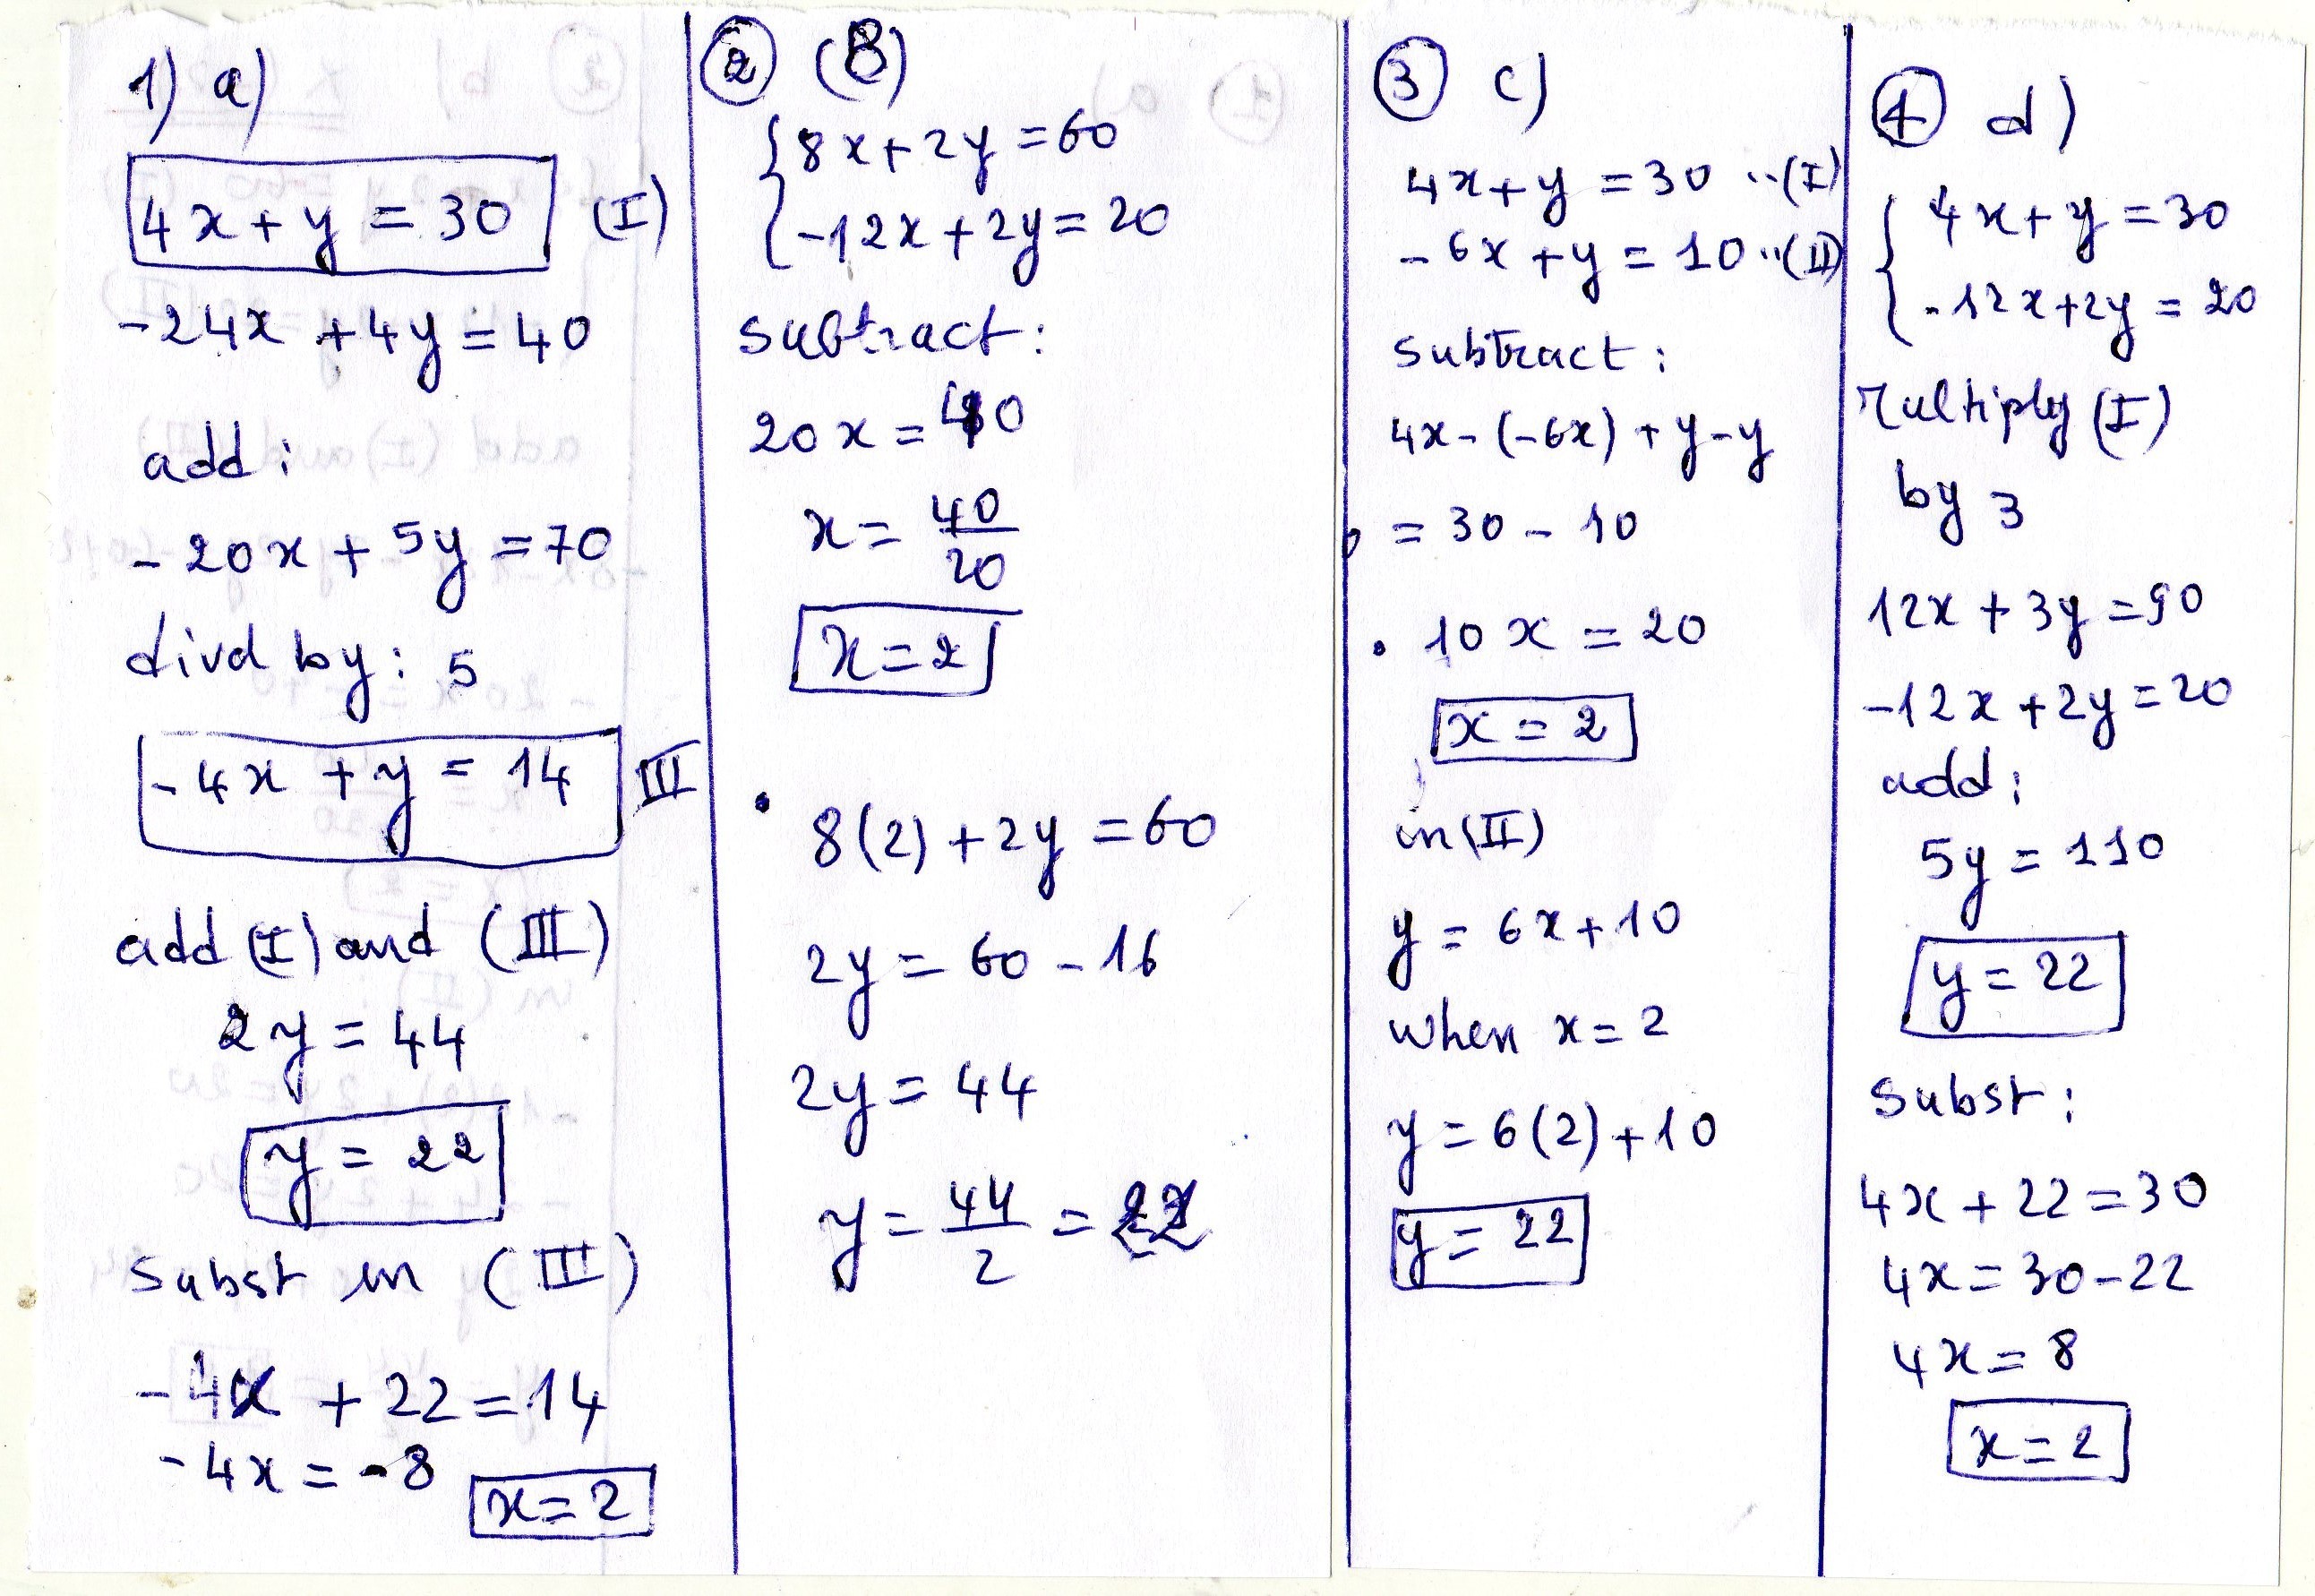 1) a)
4x + y = 30 (I)
-24x + 4y = 40
add:
-20x + 5y = 70
divd by: 5
-4x + y = 14 III
add (I) and (III)
2y = 44
y = 22
subst in (III)
-4x + 22 = 14
-4x = -8 x = 2
2 (B)
8x + 2y = 60
-12x + 2y = 20
subtract:
20x = 40
x = 40/20
x = 2
• 8(2) + 2y = 60
2y = 60 - 16
2y = 44
y = 44/2 = 22
3 c)
4x + y = 30 ..(I)
-6x + y = 10 ..(II)
subtract:
4x - (-6x) + y - y
= 30 - 10
• 10x = 20
x = 2
in (II)
y = 6x + 10
when x = 2
y = 6(2) + 10
y = 22
4 d)
4x + y = 30
-12x + 2y = 20
Multiply (I)
by 3
12x + 3y = 90
-12x + 2y = 20
add:
5y = 110
y = 22
subst:
4x + 22 = 30
4x = 30 - 22
4x = 8
x = 2